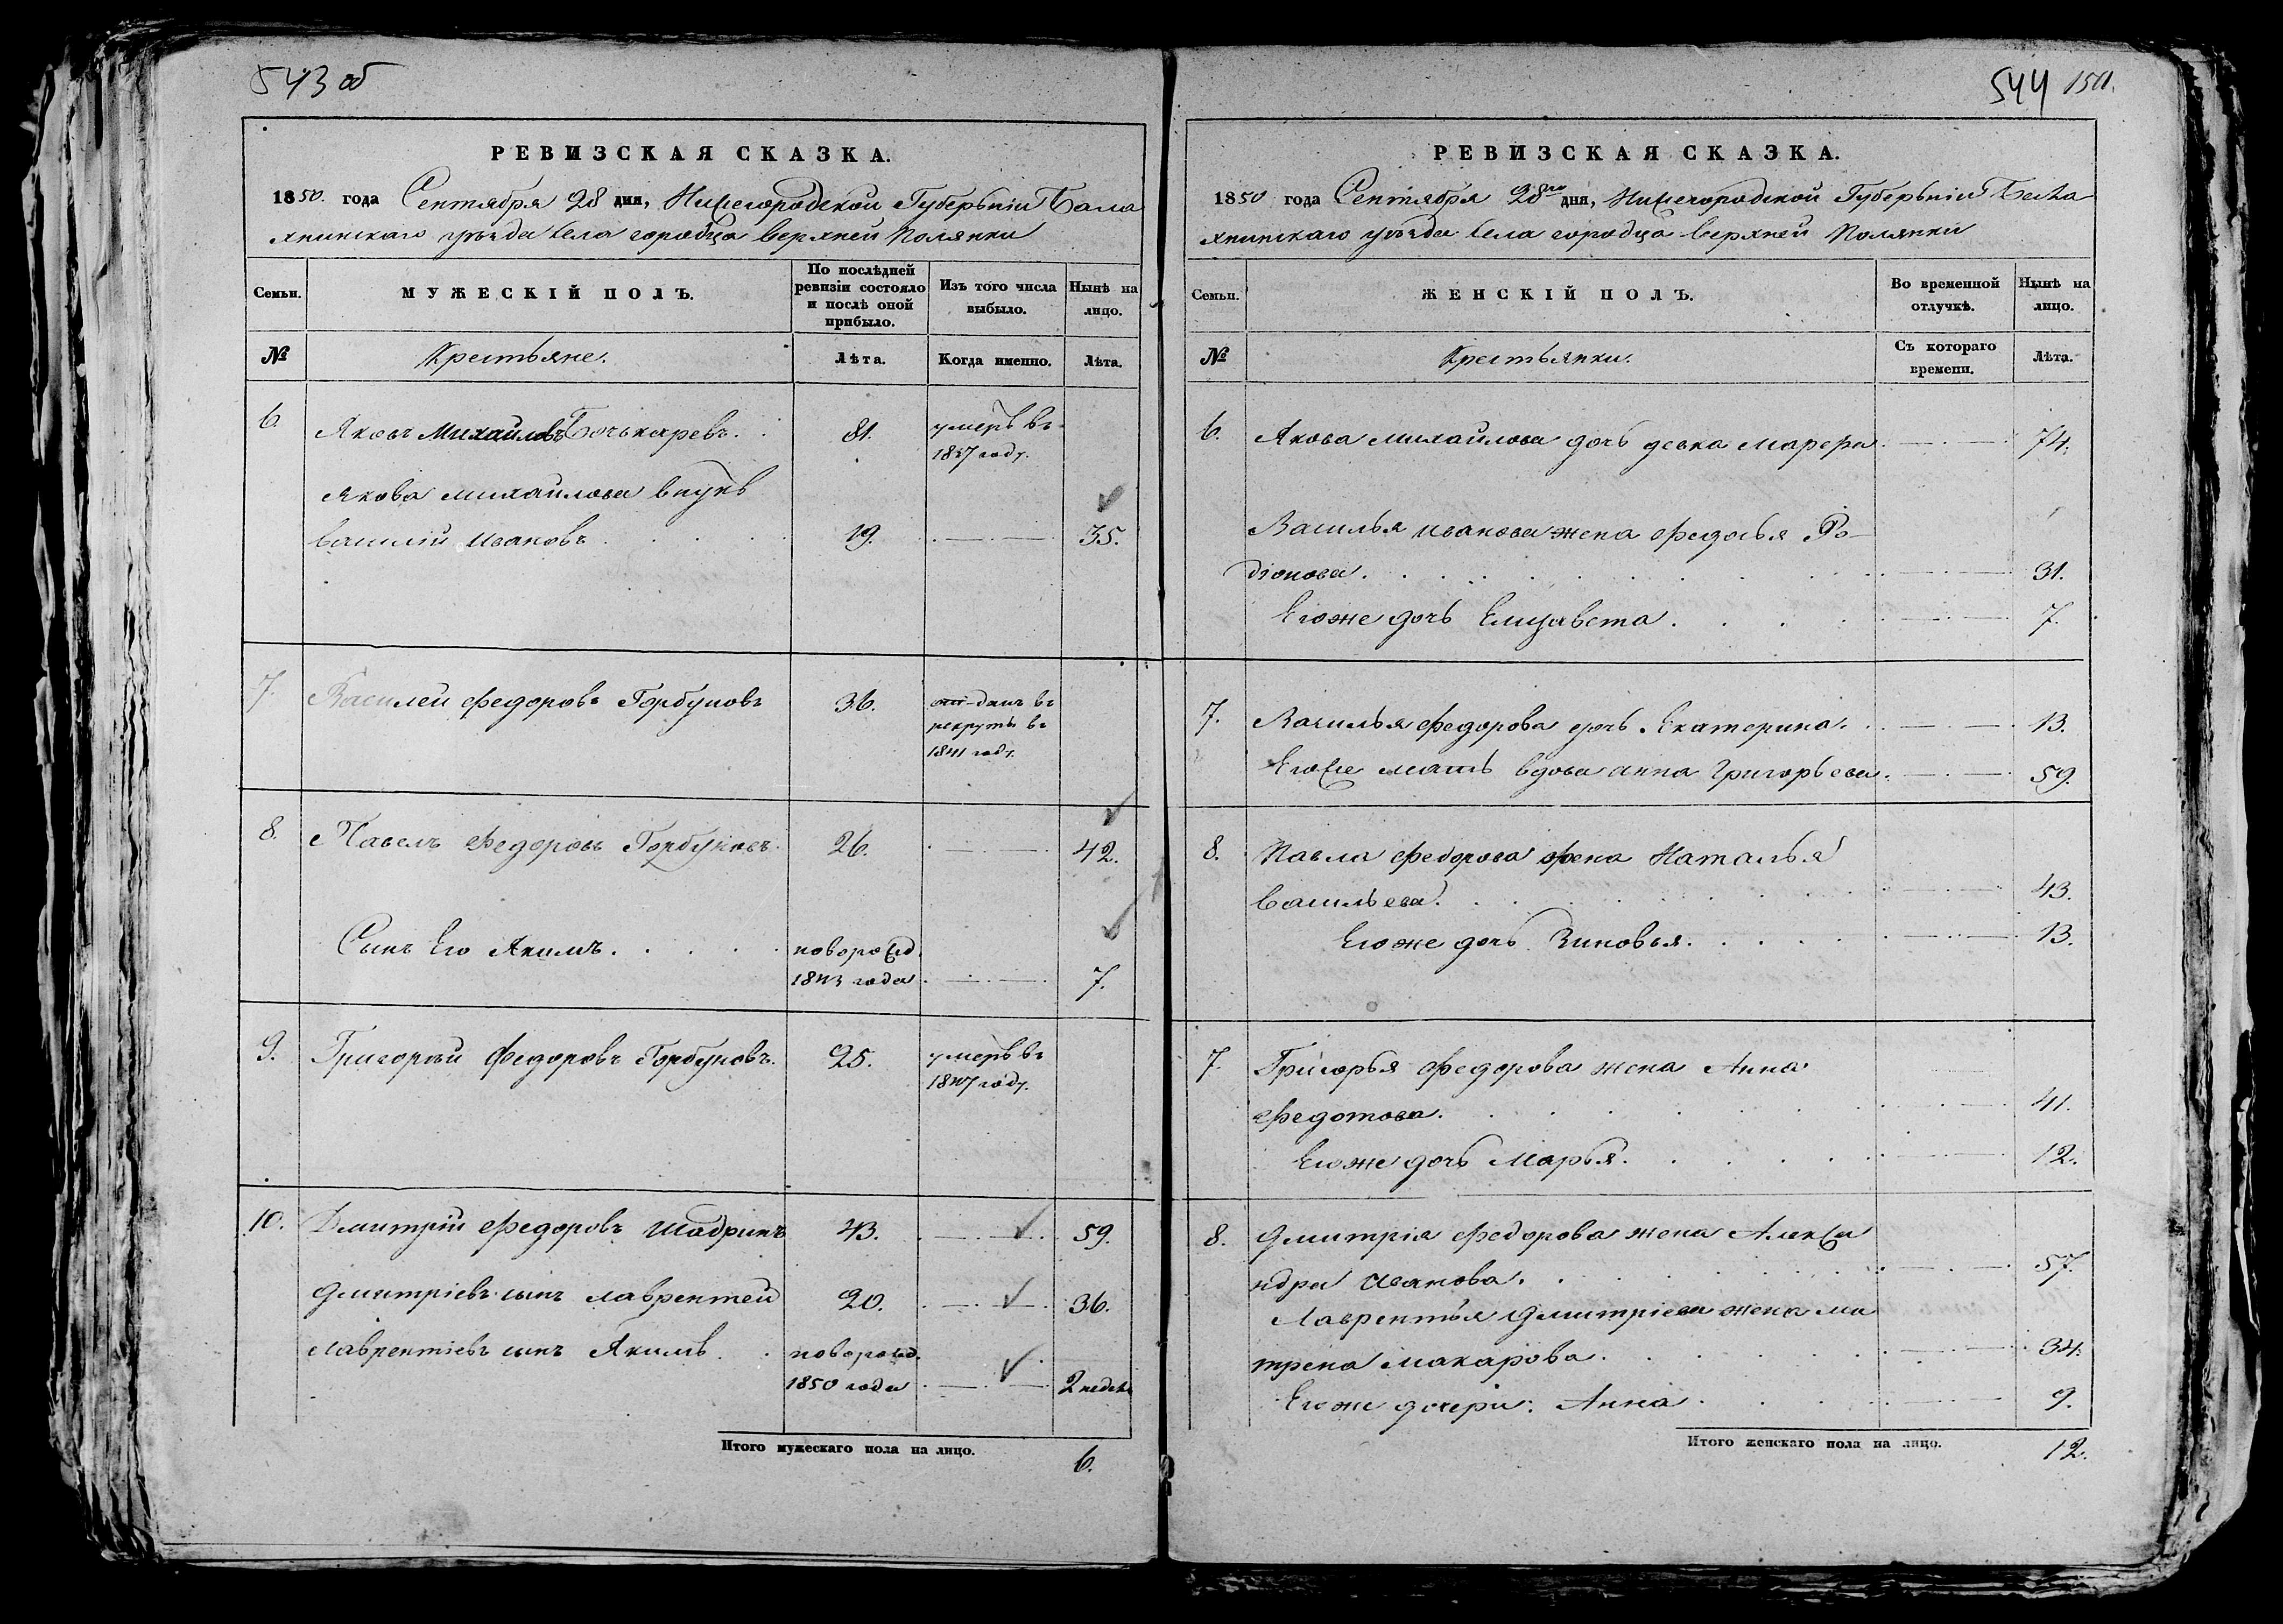 543 об
РЕВИЗСКАЯ СКАЗКА.
1850. года Сентября 28 дня, Нижегородской Губерьнiи Бала
хнинскаго уѣзда села городца верхней Полянки
Семьи.
МУЖЕСКІЙ ПОЛЪ.
По послѣдней
ревизіи состояло
и послѣ оной
прибыло.
Изъ того числа
выбыло.
Нынѣ на
лицо.
№
Крестьяне.
Лѣта.
Когда именно.
Лѣта.
6. Яковъ Михайловъ Бочькаревъ. 81. умеръ въ
1837 году.
Якова михайлова внукъ
василiй Ивановъ 19. 35.
7. Василей федоровъ Горбуновъ 36. отданъ въ
рекруты въ
1841 году.
8. Павелъ Федоровъ Горбуновъ 26. 42.
Сынъ Его Якимъ. новорожд.
1843 года 7.
9. Григорiй Федоровъ Горбуновъ. 25. умеръ въ
1847 году.
10. Дмитрiй федоровъ Шадринъ 43. 59.
Дмитрiевъ сынъ лаврентей 20. 36.
лаврентiевъ сынъ Якимъ новорожд.
1850 года 2 недел.
Итого мужескаго пола на лицо. 6.
544 150.
РЕВИЗСКАЯ СКАЗКА.
1850 года Сентября 28го дня, Нижегородской Губерьнiи Бала
хнинскаго уѣзда села городца верхней Полянки
Семьи.
ЖЕНСКІЙ ПОЛЪ.
Во временной
отлучкѣ.
Нынѣ на
лицо.
№
Крестьянки.
Съ котораго
времени.
Лѣта.
6. Якова михайлова дочь девка Марфа 74.
Василья иванова жена федосья Ро-
дiонова. 31.
Егоже дочь Елизавета. 7.
7. Василья федорова дочь Екатерина. 13.
Егоже мать вдова анна Григорьева. 59.
8. Павла федорова жена Наталья
васильева. 43.
Егоже дочь Зиновья. 13.
7. Григорья федорова жена Анна
федотова. 41.
Егоже дочь Марья. 12.
8. Дмитрiя федорова жена Алекса
ндра Иванова. 57.
Лаврентья Дмитрiева жена ма
трена макарова. 34.
Егоже дочери: Анна 9.
Итого женскаго пола на лицо. 12.